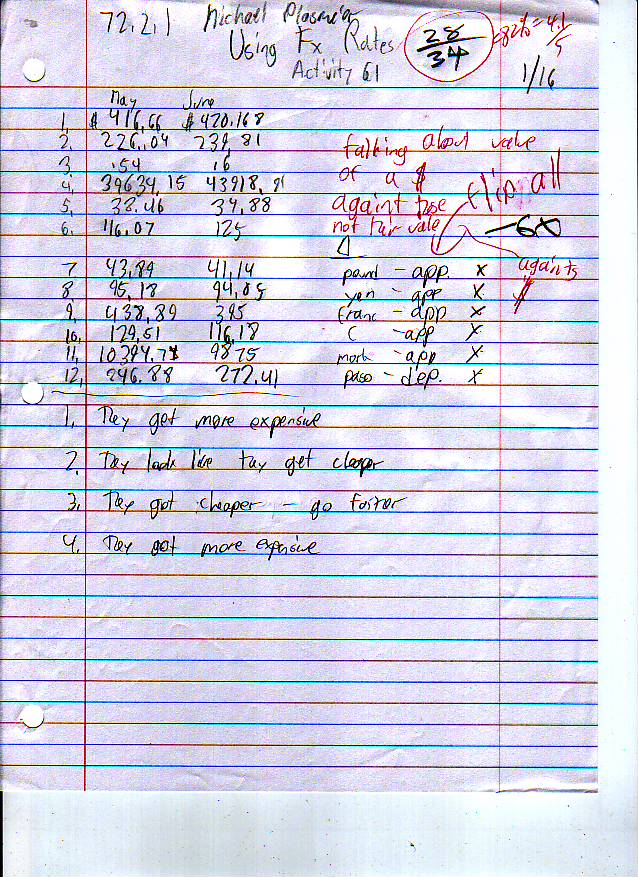 72.2.1 Michael Plasmeier
Using Fx Rates
Activity 61
28/34 = 82% = 4.1/5
1/16
May June
1. $ 416,66 $ 420.168
2. 226,04 239,81
3. .54 .6
4. 39634.15 43918,91
5. 38.46 34,88
6. 116.07 125
talking about value
of a $
against
not
flip all
-6x
againts
$
7 43,89 41,14 pound - app. x
8 95,18 94,05 yen - app x
9. 438,89 395 franc - app x
10. 129,51 116,18 C - app x
11. 10394.75 9875 mark - app x
12, 246.88 272.41 paso - dep. x
1. They get more expensive
2. They look like tay get cheaper
3. They got cheaper - go
4. They got more expensive